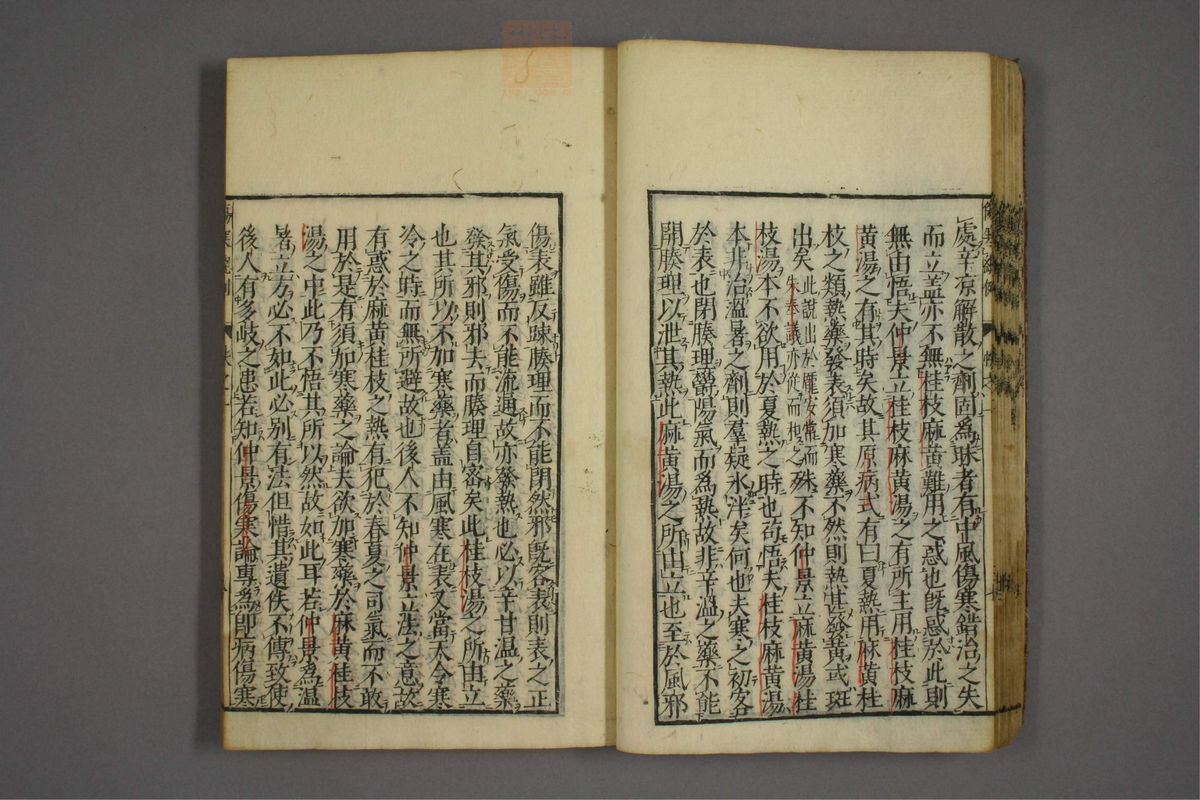 處辛涼解散之劑固爲昧者有中風傷寒錯治之失
而立盖亦不無桂枝麻黃難用之惑也旣惑於此則
無由悟夫仲景立桂枝麻黃湯之有所主用桂枝麻
黃湯之有其時矣故其原病式有曰夏熱用麻黃桂
枝之類熱藥發表須加寒藥不然則熱甚發黃或斑
出矣此說出於龐安常而
朱奉議亦從而和之殊不知仲景立麻黃湯桂
枝湯本不欲用於夏熱之時也苟悟夫桂枝麻黃湯
本非治溫暑之劑則羣疑氷泮矣何也夫寒之初客
於表也閉腠理鬱陽氣而爲熱故非辛溫之藥不能
開腠理以泄其熱此麻黃湯之所由立也至於風邪
傷表雖反踈腠理而不能閉然邪旣客表則表之正
氣受傷而不能流通故亦發熱也必以辛甘溫之藥
發其邪則邪去而腠理自密矣此桂枝湯之所由立
也其所以不加寒藥者盖由風寒在表又當天令寒
冷之時而無所避故也後人不知仲景立法之意故
有惑於麻黃桂枝之熱有犯於春夏之司氣而不敢
用於是有須加寒藥之論夫欲加寒藥於麻黃桂枝
湯之中此乃不悟其所以然故如此耳若仲景爲溫
暑立方必不如此必別有法但惜其遺佚不傳致使
後人有多歧之患若知仲景傷寒論專爲即病傷寒